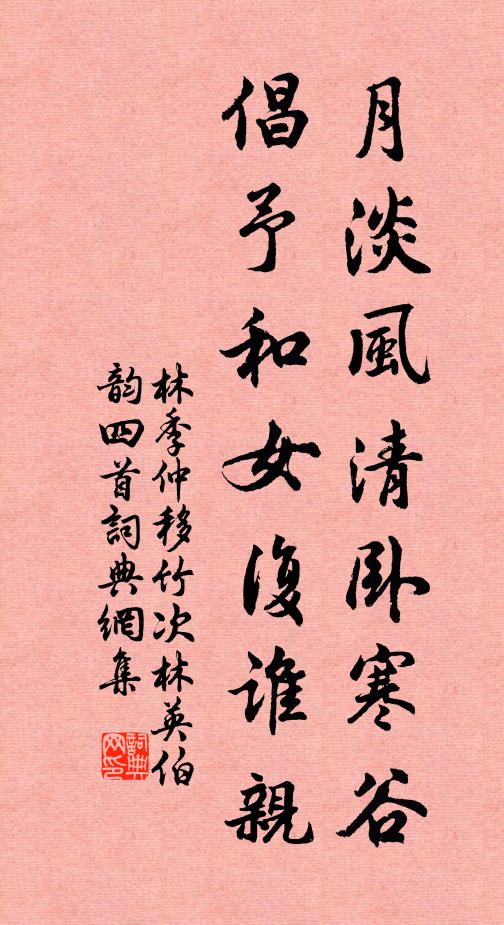 月淡風清卧寒谷
倡予和女復誰親
林季仲移竹次林英伯
韵四首詞典網集
詞典网印